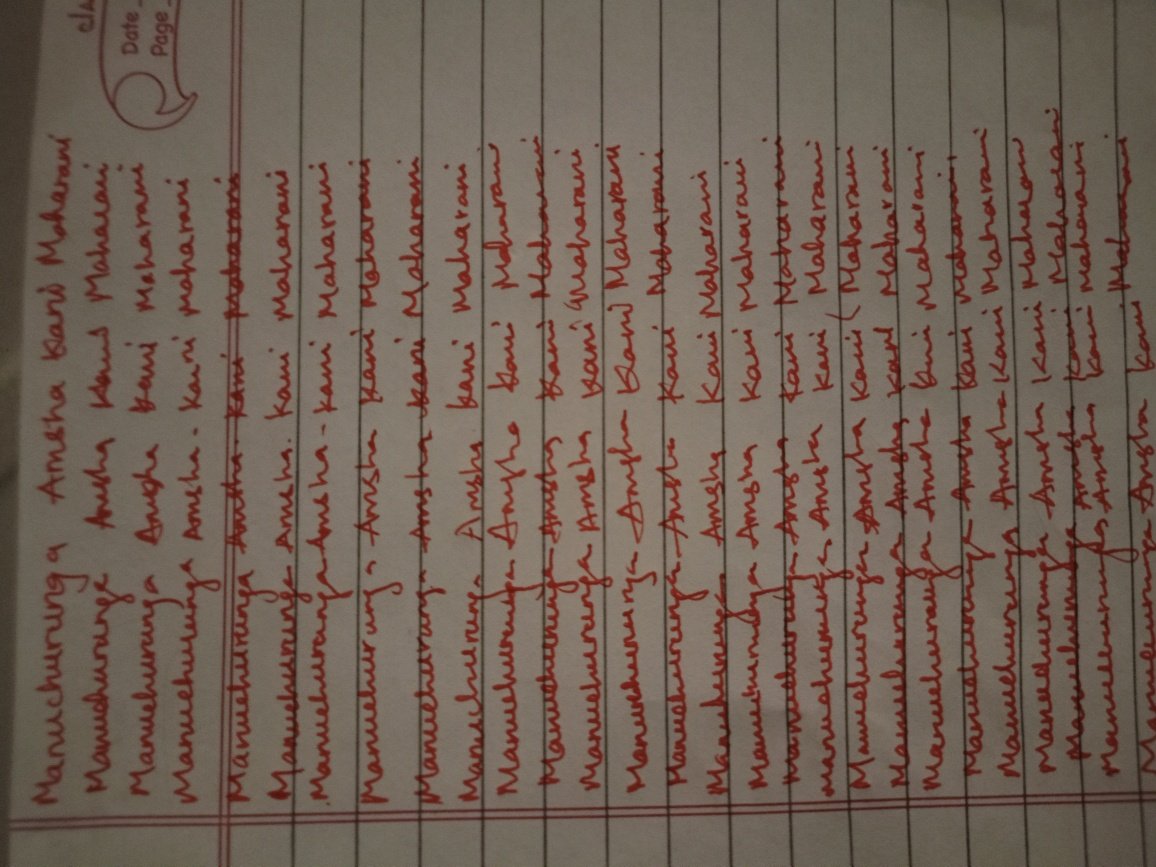 Date
Page
Manuchurunga Amsha Kani Maharani
Manuchurunga Amsha Kani Maharani
Manuchurunga Amsha Kani Maharani
Manuchurunga Amsha. Kani Maharani
Manuchurunga Amsha. Kani Maharani
Manuchurunga Amsha. Kani Maharani
Manuchurunga Amsha. Kani Maharani
Manuchurunga Amsha Kani Maharani
Manuchurunga Amsha Kani Maharani
Manuchurunga Amsha Kani Maharani
Manuchurunga Amsha Kani Maharani
Manuchurunga Amsha Kani Maharani
Manuchurunga Amsha Kani Maharani
Manuchurunga Amsha Kani Maharani
Manuchurunga Amsha Kani Maharani
Manuchurunga Amsha Kani Maharani
Manuchurunga Amsha Kani Maharani
Manuchurunga Amsha Kani Maharani
Manuchurunga Amsha Kani Maharani
Manuchurunga Amsha Kani Maharani
Manuchurunga Amsha Kani Maharani
Manuchurunga Amsha Kani Maharani
Manuchurunga Amsha Kani Maharani
Manuchurunga Amsha Kani Maharani
Manuchurunga Amsha Kani Maharani
Manuchurunga Amsha Kani Maharani
Manuchurunga Amsha Kani Maharani
Manuchurunga Amsha Kani Maharani